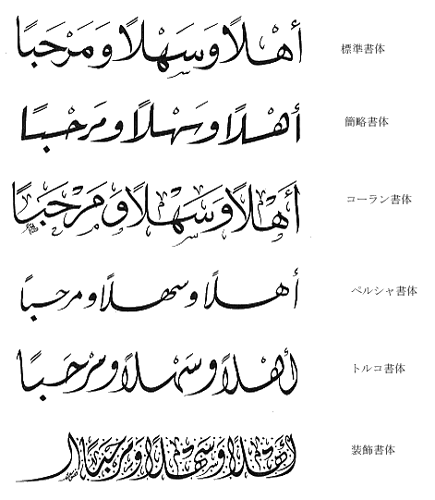 أهْلًا وَسَهْلًا وَمَرْحَبًا 標準書体
أهْلًا وسَهْلًا ومَرحْبًا 簡略書体
أَهْلًا وَسَهْلًا وَمَرْحَبًا コーラン書体
أهلًا وسهلًا ومرحبًا ペルシャ書体
أهْلًا وسَهْلًا ومَرْحَبًا トルコ書体
أهْلًا وسَهْلًا ومَرْحَبًا 装飾書体